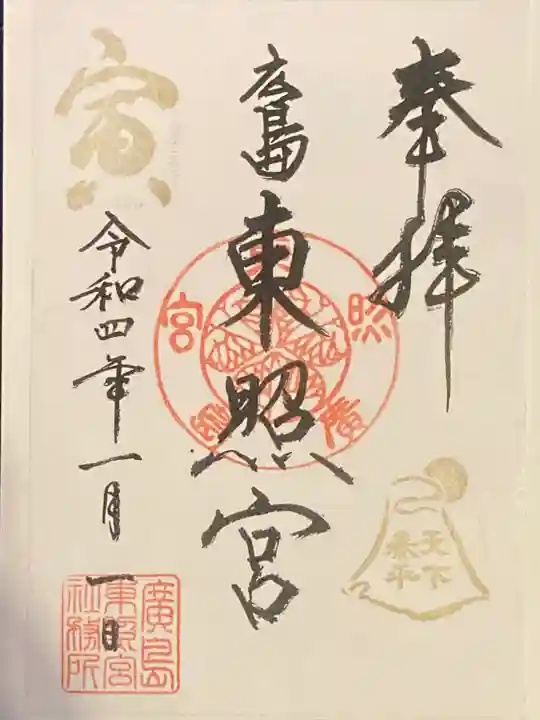 奉拝
廣島
東照宮
寅
令和四年一月一日
天下
泰平
東
照
宮
廣
島
廣島
東照宮
社務所